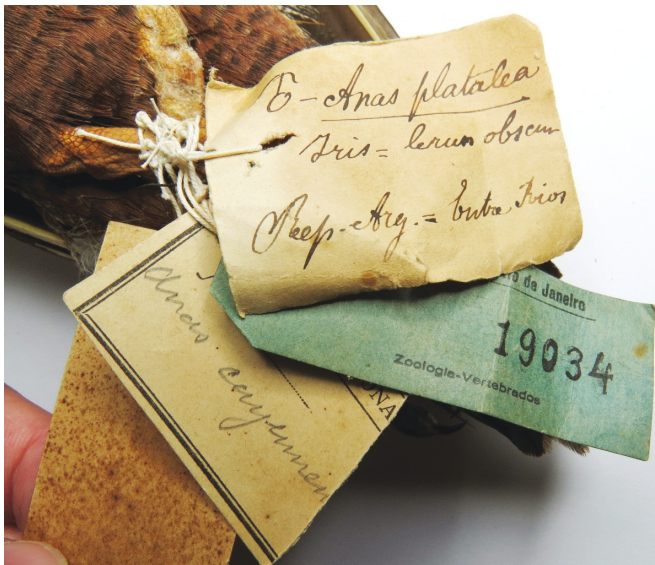 Anas platalea
Iris = brun obscur
Rep. Arg. = Entre Rios
de Janeiro
19034
Zoologia-Vertebrados
Anas